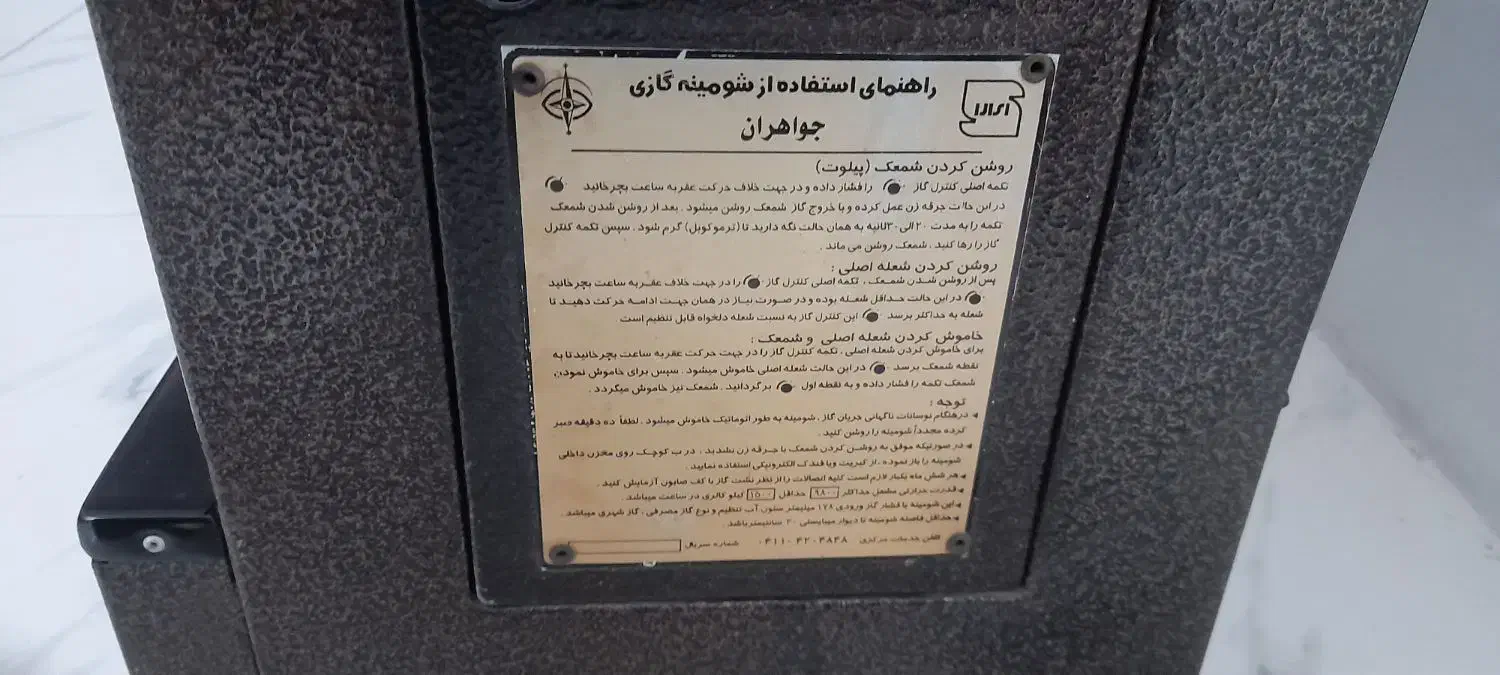 راهنمای استفاده از شومینه گازی
جواهران
روشن کردن شمعک (پیلوت)
تکمه اصلی کنترل گاز را فشار داده و در جهت خلاف حرکت عقربه ساعت بچرخانید
در این حالت جرقه زن عمل کرده و با خروج گاز شمعک روشن میشود . بعد از روشن شدن شمعک
تکمه را به مدت ۲۰ الی ۳۰ ثانیه به همان حالت نگه دارید تا (ترموکوپل) گرم شود . سپس تکمه کنترل
گاز را رها کنید . شمعک روشن می ماند .
روشن کردن شعله اصلی :
پس از روشن شدن شمعک ، تکمه اصلی کنترل گاز را در جهت خلاف عقربه ساعت بچرخانید
در این حالت حداقل شعله بوده و در صورت نیاز در همان جهت ادامه حرکت دهید تا
شعله به حداکثر برسد این کنترل گاز به نسبت شعله دلخواه قابل تنظیم است
خاموش کردن شعله اصلی و شمعک :
برای خاموش کردن شعله اصلی ، تکمه کنترل گاز را در جهت حرکت عقربه ساعت بچرخانید تا به
نقطه شمعک برسد در این حالت شعله اصلی خاموش میشود . سپس برای خاموش نمودن
شمعک تکمه را فشار داده و به نقطه اول برگردانید . شمعک نیز خاموش میگردد .
توجه :
در هنگام نوسانات ناگهانی جریان گاز ، شومینه به طور اتوماتیک خاموش میشود . لطفاً ده دقیقه صبر
کرده مجدداً شومینه را روشن کنید .
در صورتیکه موفق به روشن کردن شمعک با جرقه زن نشدید ، درب کوچک روی مخزن داخلی
شومینه را باز نموده ، از کبریت و یا فندک الکترونیکی استفاده نمایید .
هر شش ماه یکبار لازم است کلیه اتصالات را از نظر نشت گاز با کف صابون آزمایش کنید .
قدرت حرارتی مشعل حداکثر ۹۸۰۰ حداقل ۱۵۰۰ کیلو کالری در ساعت میباشد .
این شومینه با فشار گاز ورودی ۱۷۸ میلیمتر ستون آب تنظیم و نوع گاز مصرفی ، گاز شهری میباشد .
حداقل فاصله شومینه تا دیوار میبایستی ۲۰ سانتیمتر باشد .
تلفن خدمات مرکزی ۰۴۱۱-۴۲۰۴۸۴۸ شماره سریال